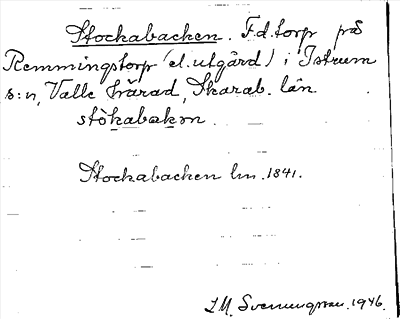 Stockabacken. F.d. torp på
Remmingstorp (el. utgård) i Istrum
s:n, Valle härad, Skarab. län.
stòkabakɘn
Stockabacken lm. 1841.
I.M. Svenungsson. 1946.